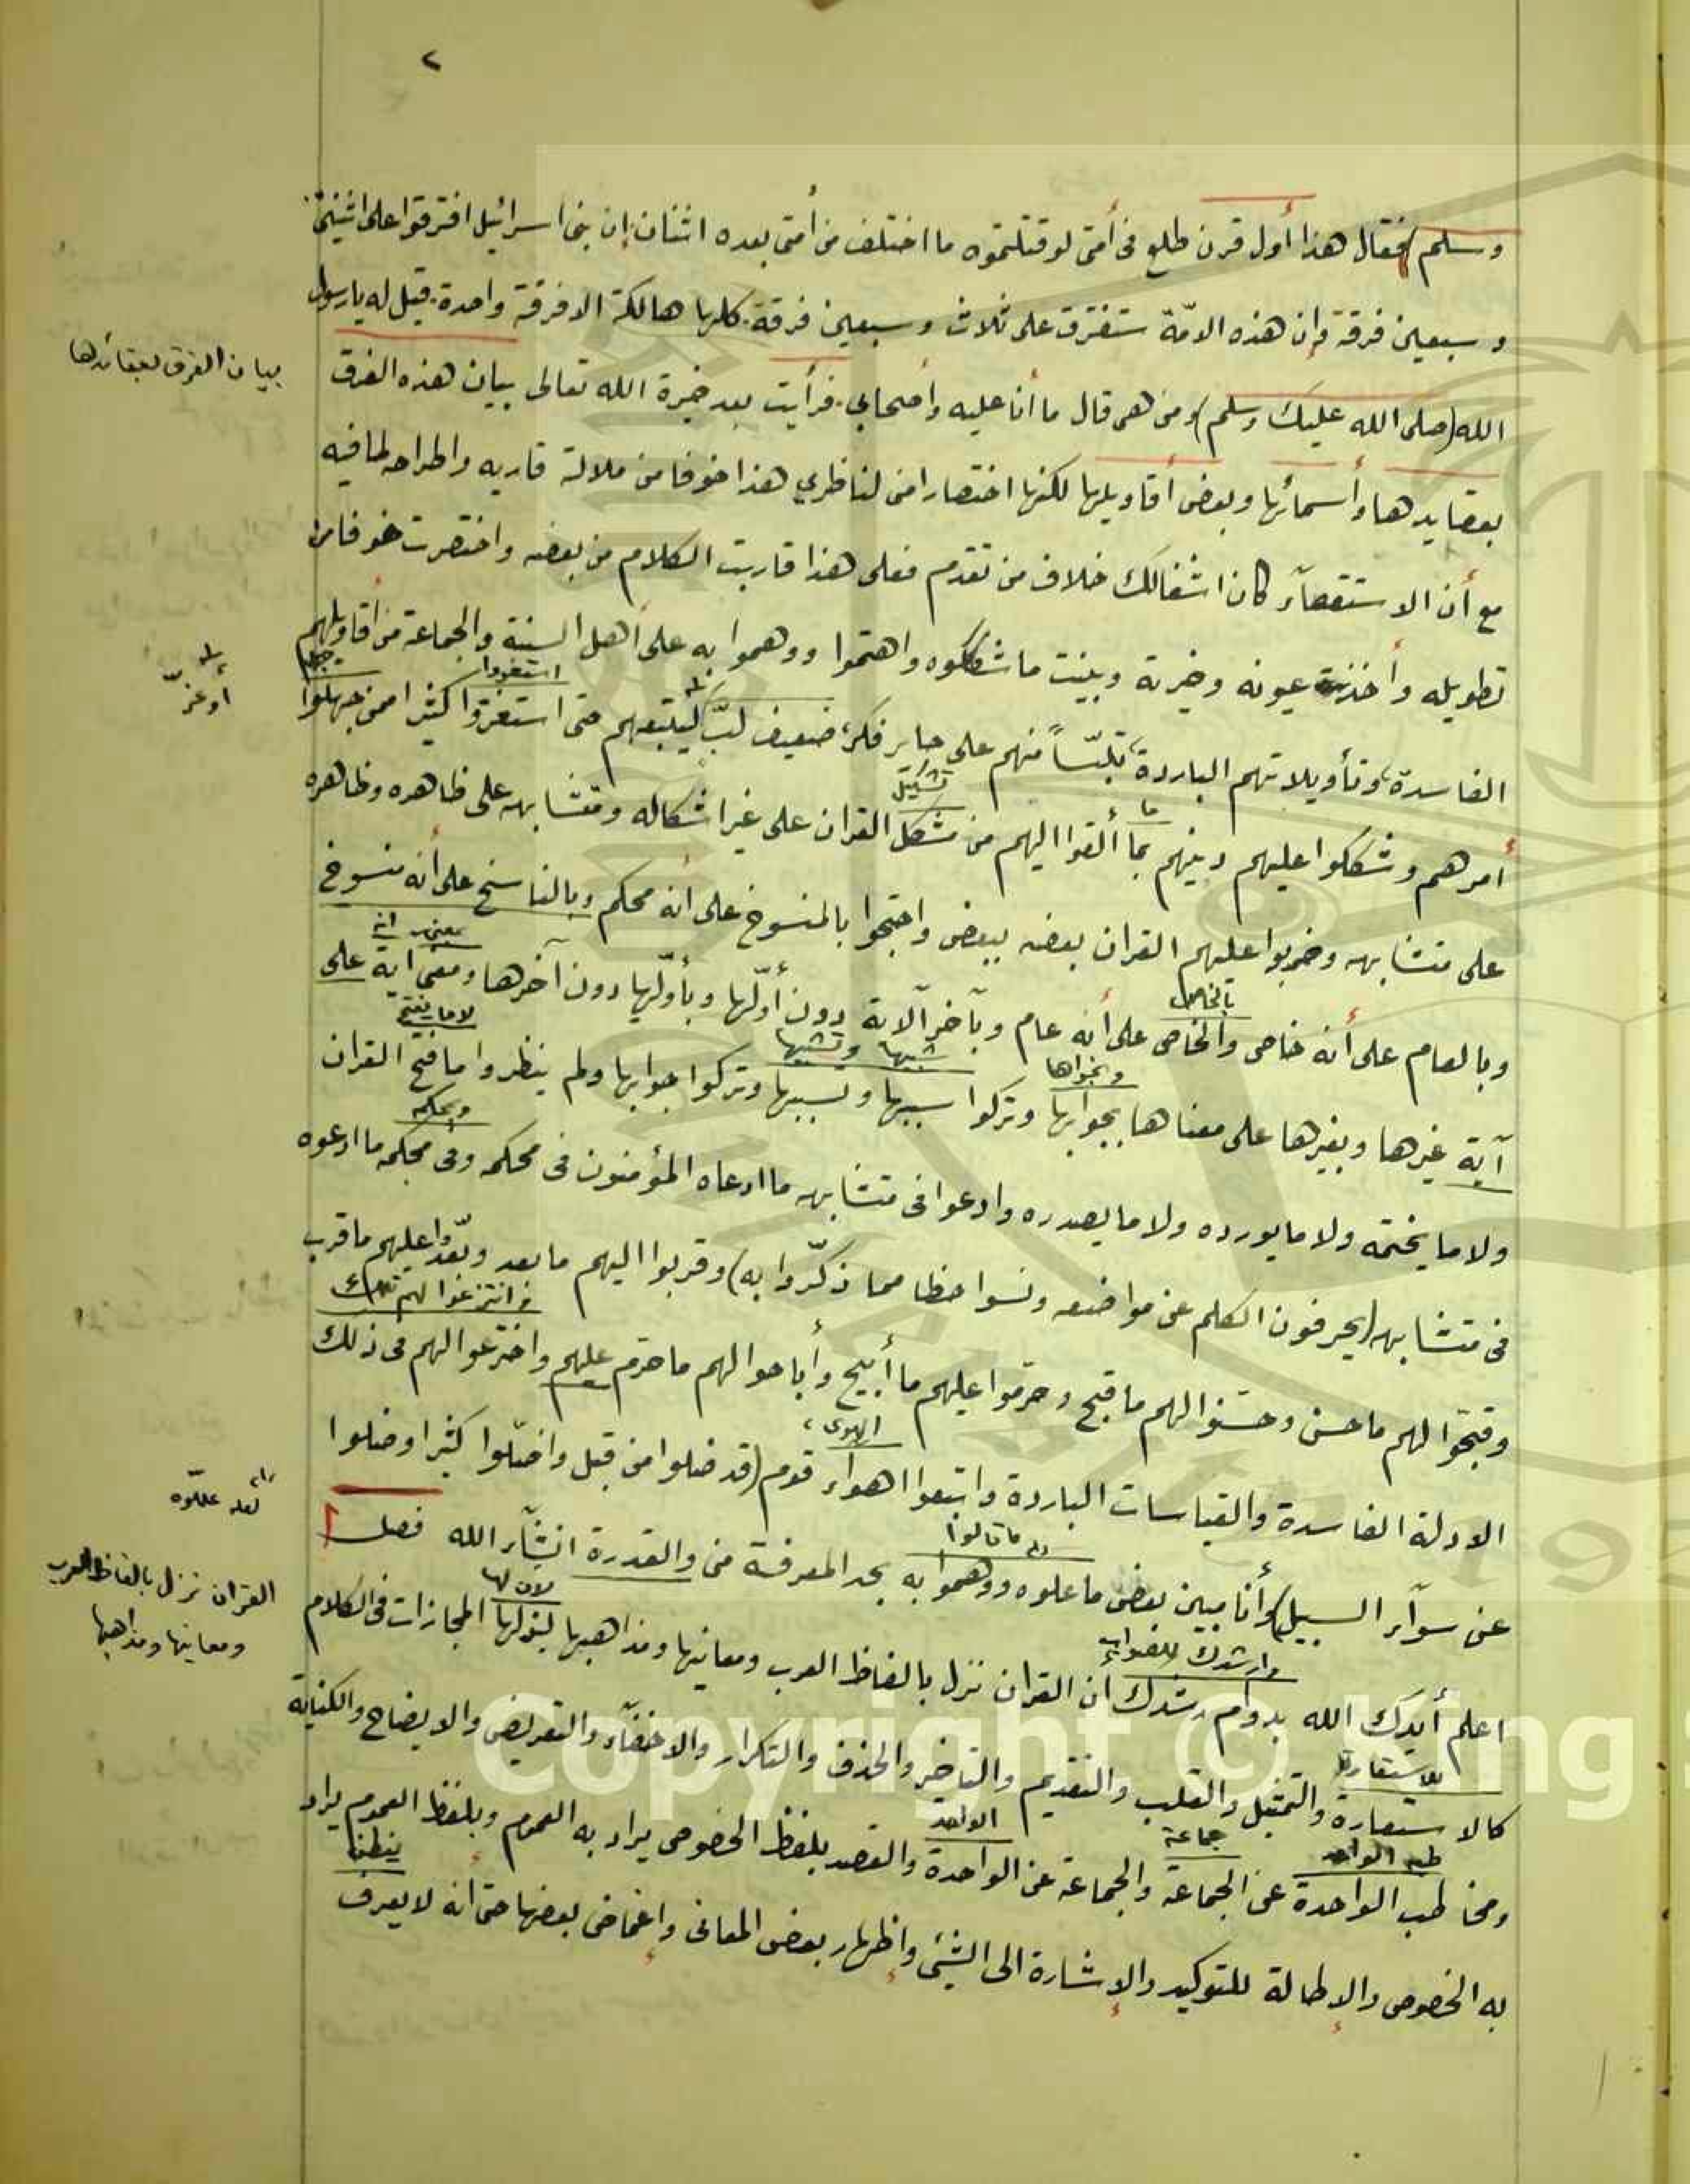 ٢
وسلم) فقال هذا أول قرن طلع فى أمتى لو قتلتموه ما اختلف من أمتى بعده اثنان إن بنى اسرائيل افترقوا على اثنين
وسبعين فرقة وإن هذه الامّة ستفترق على ثلاث وسبعين فرقة. كلها هالكة الا فرقة واحدة. قيل له يا رسول
بيان الفرق بعقائدها
الله (صلى الله عليك وسلم) ومن هى قال ما أنا عليه وأصحابى. فرأيت بعد خيرة الله تعالى بيان هذه الفرق
بعقايدها وأسمائها وبعض أقاويلها لكنها اختصارا منى لناظرى هذا خوفا من ملالة قاريه واطراحه لما فيه
مع أن الاستقصآء كان اشفالك خلاف من تقدم فعلى هذا قاربت الكلام من بعضه واختصرت خوفا من
تطويله وأخذت عيونه وخيرته وبينت ما شككوه واهتموا ووهموا به على أهل السنة والجماعة من أقاويلهم
استغروا
الفاسدة، وتأويلاتهم الباردة، تلبّسا منهم على جاير فكر، ضعيف لبّ ليتبعهم حتى استغزوا كثيرا ممن جهلوا
تشكيل
ما
أمرهم وشككوا عليهم دينهم بما ألقوا اليهم من مشكل القران على غير اشكاله ومتشابهه على ظاهره وظاهره
على متشابهه وضربوا عليهم القران بعضه ببعض واحتجوا بالمنسوخ على أنه محكم وبالناسخ على أنه منسوخ
بالخاص
وبالعام على أنه خاص والخاص على أنه عام وبآخر الآية دون أوّلها وبأوّلها دون آخرها ومعنى آية على
شبهها
آية غيرها وبغيرها على معناها بجوابها وتركوا سببها ونسببها وتركوا جوابها ولم ينظروا ما فتح القران
وبحكمه
ولا ما يختمه ولا ما يورده ولا ما يصدره وادعوا فى متشابهه ما ادعاه المؤمنون فى محكمه وفى محكمه ما ادعوه
فى متشابهه (يحرفون الكلم عن مواضعه ونسوا حظا مما ذكّروا به) وقربوا اليهم ما بعد وبعّدوا عليهم ما قرب
وقبّحوا لهم ما حسن وحسّنوا لهم ما قبح وحرّموا عليهم ما أبيح وأباحوا لهم ما حرّم عليهم واخترعوا لهم فى ذلك
الهوى
الادلة الفاسدة والقياسات الباردة واتبعوا اهواء قوم (قد ضلوا من قبل واضلّوا كثيرا وضلوا
لعله عللّوه
ما قالوا
عن سوآء السبيل) وأنا مبين بعض ما علوه ووهموا به بحد المعرفة منى والقدرة انشآء الله فصل
القران نزل بالفاظ العرب
ومعانيها ومذاهبها
وارشدك للصواب
اعلم أيدك الله بدوام رشدك أن القران نزل بالفاظ العرب ومعانيها ومذاهبها لنزلها المجازات فى الكلام
كالاستعارة والتمثيل والقلب والتقديم والتاخير والحذف والتكرار والاخفآء والتعريض والايضاح والكناية
جماعة
الواحد
ومخاطب الواحدة عن الجماعة والجماعة عن الواحدة والقصد بلفظ الخصوص يراد به العموم وبلفظ العموم يراد
به الخصوص والإطالة للتوكيد والإشارة الى الشيئ وإظهار بعض المعانى وإغماض بعضها حتى أنه لا يعرف
Copyright © King